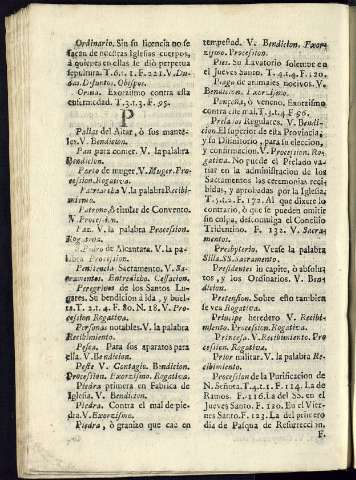 Ordinario. Sin su licencia no se
saçan de nuestras Iglesias cuerpos,
á quienes en ellas se dió perpetua
sepultura. T.6.t.1. F.221. V. Du-
das. Difuntos. Obispos.
Orina. Exorzismo contra esta
enfermedad. T.3.t.3. F. 95.
P
Palias del Altar, ó sus mante-
les. V. Bendicion.
Pan para comer. V. la palabra
Bendicion.
Parto de muger. V. Muger. Pro-
cesion. Rogativa.
Patriarcha V. la palabra Recibi-
miento.
Patrono, ó titular de Convento.
V. Procesion.
Paz. V. la palabra Procesion.
Rogativa.
S. Pedro de Alcantara. V. la pa-
labra Procesion.
Penitencia Sacramento. V. Sa-
cramentos. Entredicho. Cessacion.
Peregrinos de los Santos Lu-
gares. Su bendicion á ida, y buel-
ta. T. 2. t. 4. F. 80. N. 18. V. Pro-
cesion Rogativa.
Personas notables. V. la palabra
Recibimiento.
Pesca. Para sos aparatos para
ella. V. Bendicion.
Peste V. Contagio. Bendicion.
Procesion. Exorzismo. Rogativa.
Piedra primera en Fabrica de
Iglesia. V. Bendicion.
Piedra. Contra el mal de pie-
dra. V. Exorzismo.
Piedra, ó granizo que cae en
tempestad. V. Bendicion. Exor-
zismo. Procession.
Pies. Su Lavatorio solemne en
el Jueves Santo. T. 4. t. 4. F. 120.
Plaga de animales nocivos. V.
Bendicion. Exorzismo.
Ponçoña, ó veneno, Exorzismo
contra este mal. T.3. t.4 F 96.
Prelados Regulares. V. Bendi-
cion. El superior de esta Provincia,
y su Difinitorio, para su eleccion,
y confirmacion. V. Procession. Ro-
gativa. No puede el Prelado va-
riar en la administracion de los
Sacramentos las ceremonias reci-
bidas, y aprobadas por la Iglesia,
T.5.t.2. F. 172. Al que dixere lo
contrario, ó que se pueden omitir
sin culpa, descomulga el Concilio
Tridentino. F. 132. V. Sacra-
mentos.
Presbyterio. Vease la palabra
Silla. SS. Sacramento.
Presidentes in capite, ó absolu-
tos, y los Ordinarios. V. Ben-
dicion.
Pretension. Sobre esto tambien
se vea Rogativa.
Principe heredero V. Recibi-
miento. Procesion. Rogativa.
Princesa. V. Recibimiento. Pro-
cesion. Rogativa.
Prior militar. V. la palabra Re-
cibimiento.
Procesion de la Purificacion de
N. Señora. T.4.t.1. F. 114. La de
Ramos. F. 116. La del SS. en el
Jueves Santo. F. 120. En el Vier-
nes Santo. F. 123. La del primero
dia de Pasqua de Resurreccion.
F.